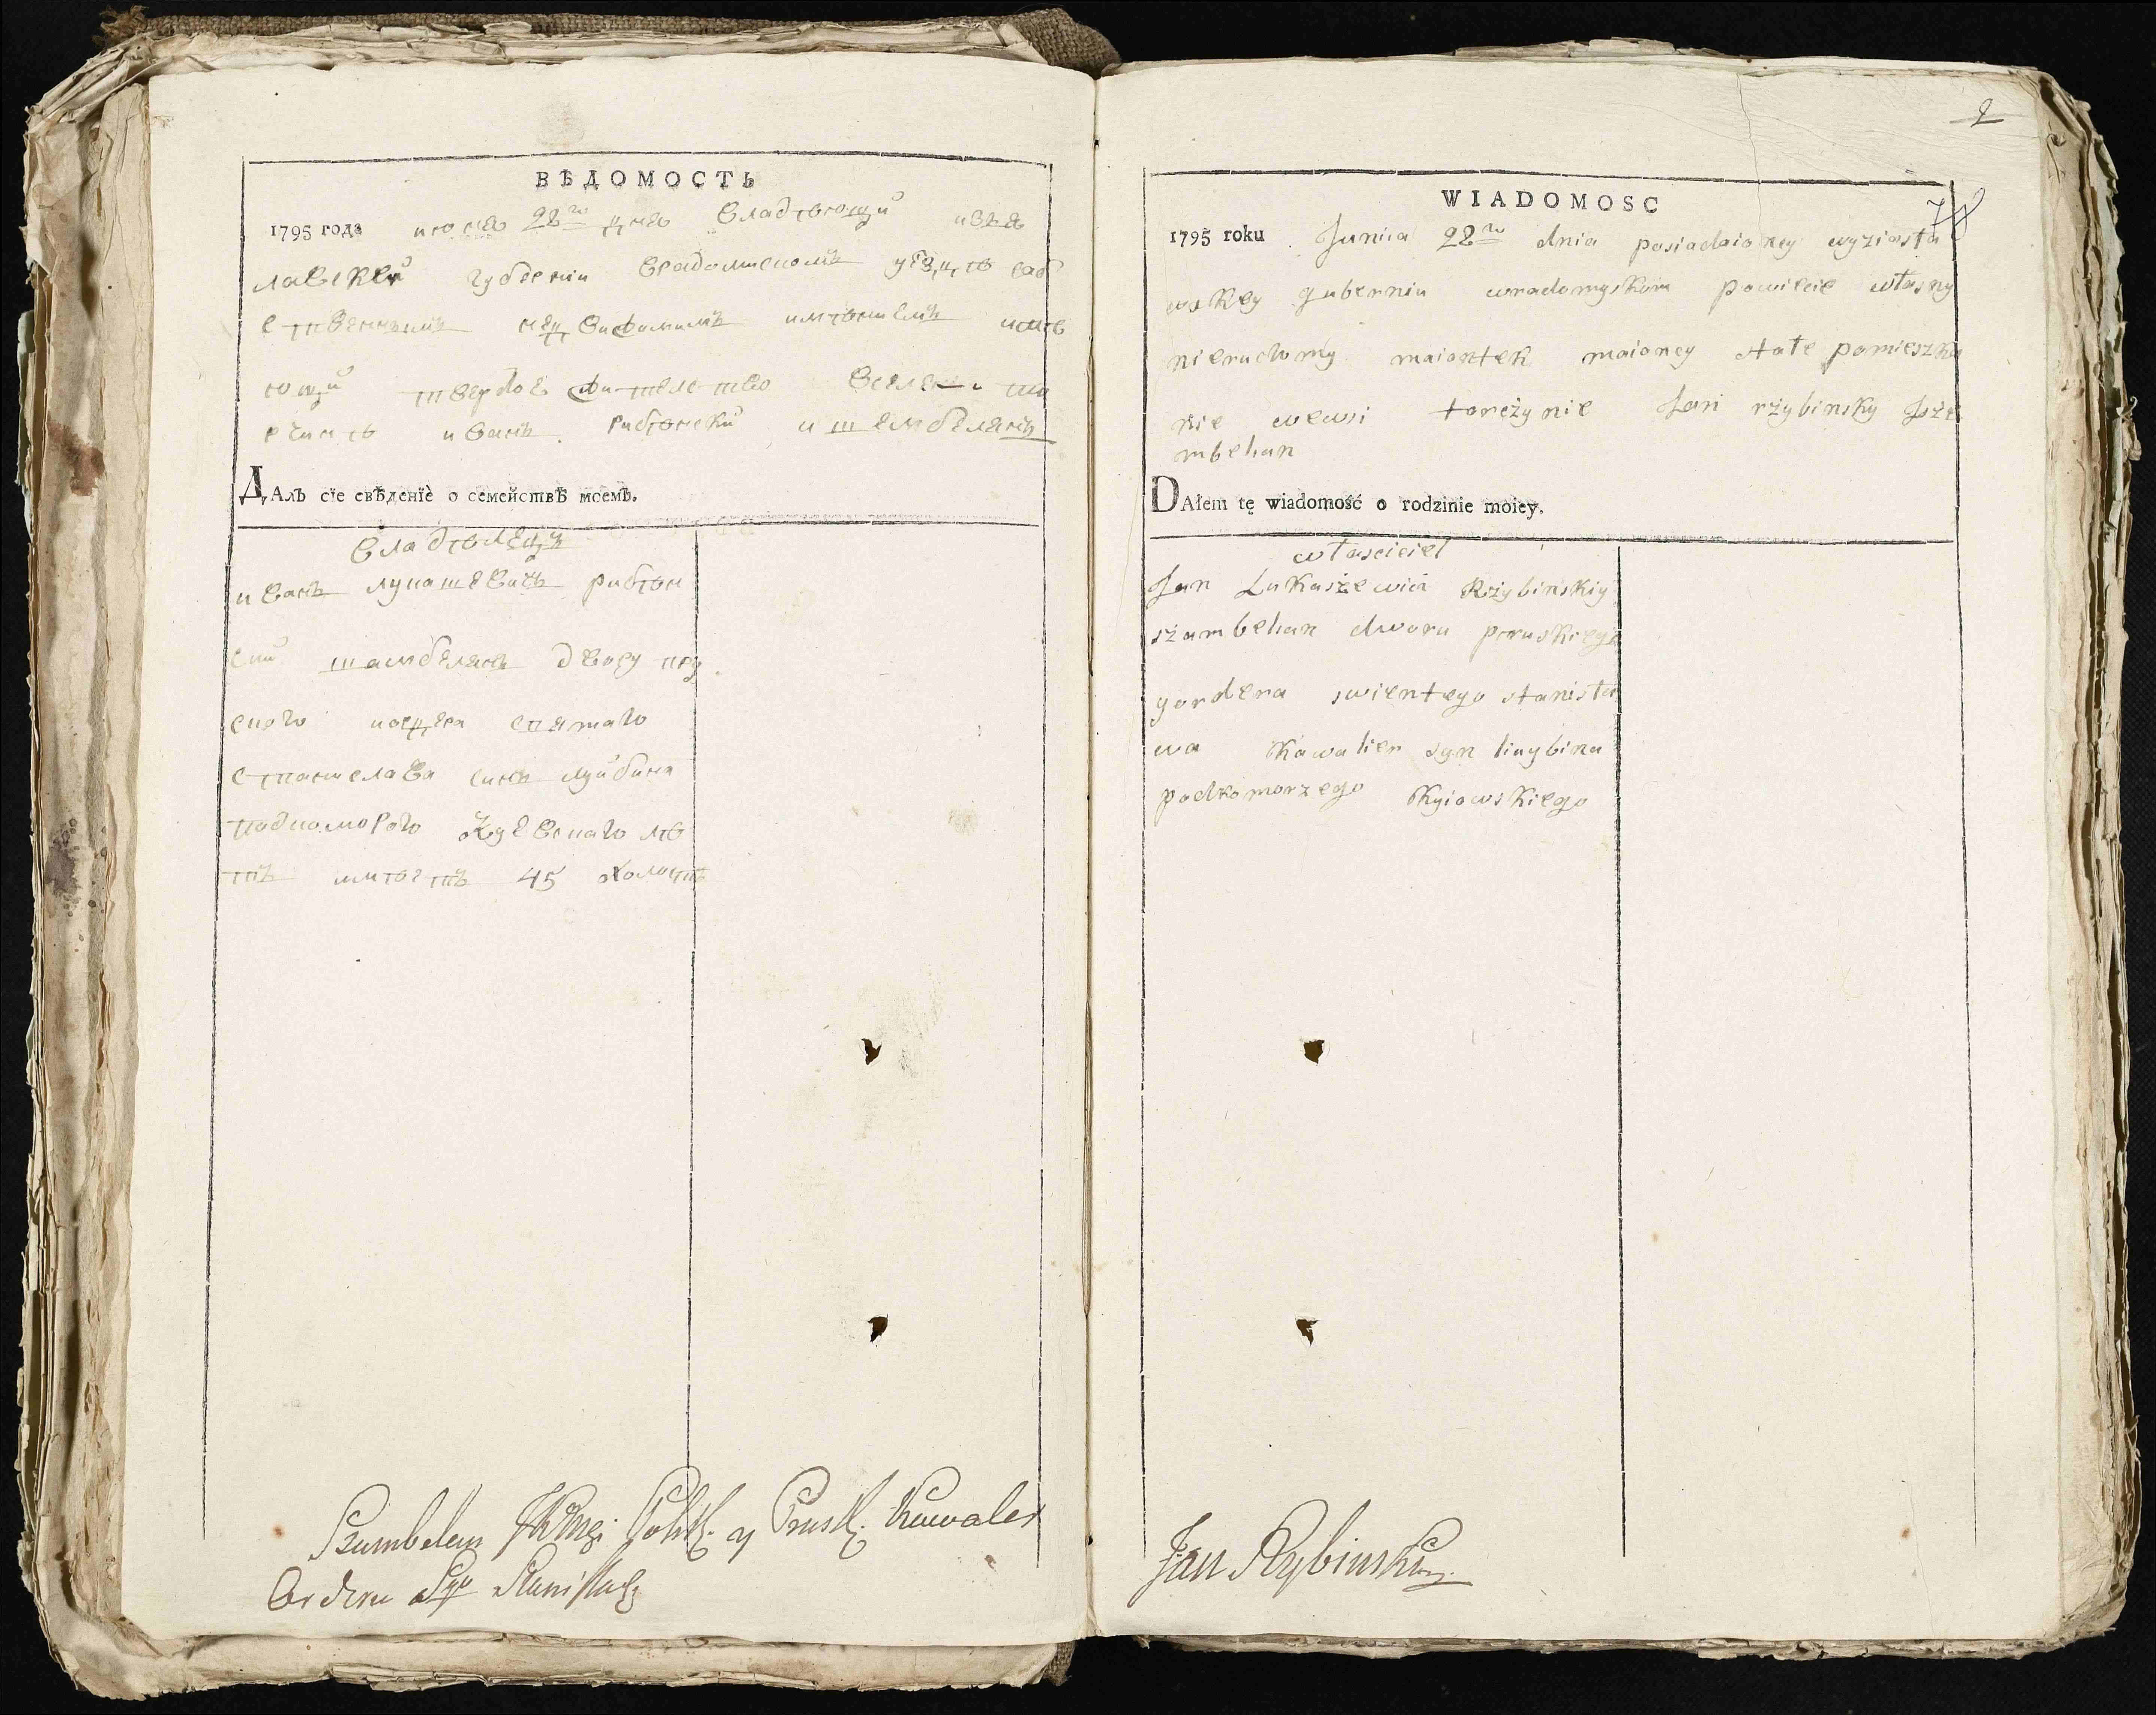 ВѢДОМОСТЬ
1795 года июня 28го дня владѣющий изья
лавской губернии врадомиском уѣздѣ соб
ственным недвижимым имѣнием имѣ
ющий твердое
иван рибѣнский шембелянъ
Далъ сїе свѣденїе о семействѣ моемъ.
владѣлецъ
иванъ лукашевичъ рибѣн
ский шамбелянъ двору пру
ского святаго
станислава синъ
подкоморого лѣ
тъ имѣетъ 45 холостъ
Szambelan Polsk. y Prusk. Kawaler
Orderu Sgo Stanisła
2
78
WIADOMOSC
1795 roku Junia 28go dnia posiadaioncy wyziasła
wskey gubernii wradomyskom powiecie własny
nieruchomy maiontek maioncy stałe pomieszka
nie wewsi torczynie Jan rżybinsky sże
mbelian
DAłem tę wiadomość o rodzinie moiey.
własciciel
Jan Lukaszewicz Rżybinskiy
szambelian dworu pruskiego
gordera swientego stanisła
wa Kawalier syn
podkomorzego Kyiowskiego
Jan Rybinski